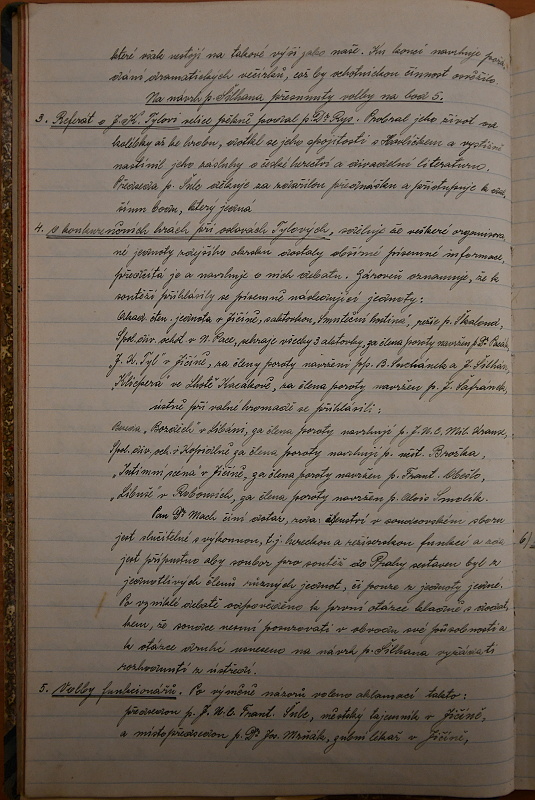 které však nestojí na takové výši jako naše. Ku konci navrhuje pořá-
dání dramatických večírků, což by ochotnickou činnost oživilo.
Na návrh p. Šilhana přesunuty volby na bod 5.
3. Referát o J. K. Tylovi velice pěkně povzal p. Dr Rys. Probral jeho život od
kolébky až ke hrobu, dotkl se jeho spojitosti s Havlíčkem a vystižně
nastínil jeho zásluhy o české herectví a divadelní literaturu.
Předseda p. Šulc děkuje za zdařilou přednášku a přistupuje k dal-
šímu bodu, který jedná
4. o konkurenčních hrách při oslavách Tylových, sděluje že veškeré organisova-
né jednoty zdejšího okrsku dostaly obšírné písemné informace,
předčítá je a navrhuje o nich debatu. Zároveň oznamuje, že k
soutěži přihlásily se písemně následující jednoty:
čten. jednota v Jičíně, sehraje p. Škaloud,
Spol. div. ochot. v N. Pace, sehraje všecky 3 aktovky, za člena poroty navržen p. Dr
"J. K. Tyl" v Jičíně, za členy poroty navrženi pp. B. a J. Šilhan,
Klicpera ve Lhotě za člena poroty navržen p. J. Šafránek,
ústně při valné hromadě se přihlásili:
v Libáni, za člena poroty navrhují p. J. U. C. Mil.
Spol. div. och. v Kopidlně za člena poroty navrhují p. Brožka,
"Intimní scéna" v Jičíně, za člena poroty navržen p. Frant.
"Libuše" v Robousích, za člena poroty navržen p. Alois Smolík.
Pan Dr Mach činí dotaz, zda členství v soudcovském sboru
jest slučitelné s výkonnou, t. j. hereckou a režisérskou funkcí a zda
jest přípustno aby soubor pro soutěž do Prahy sestaven byl z
jednotlivých členů různých jednot, či pouze z jednoty jedné.
Po vzniklé debatě odpověděno k první otázce kladně s dodat-
kem, že soudce nesmí posuzovati v obvodu své působnosti a
k otázce druhé usneseno na návrh p. Šilhana vyžádati
rozhodnutí z ústředí.
5. Volby funkcionářů. Po výměně názorů voleno aklamací takto:
předsedou p. J. U. C. Frant. Šulc, městský tajemník v Jičíně,
a místopředsedou p. Dr Jos. Mrňák, zubní lékař v Jičíně,
6)